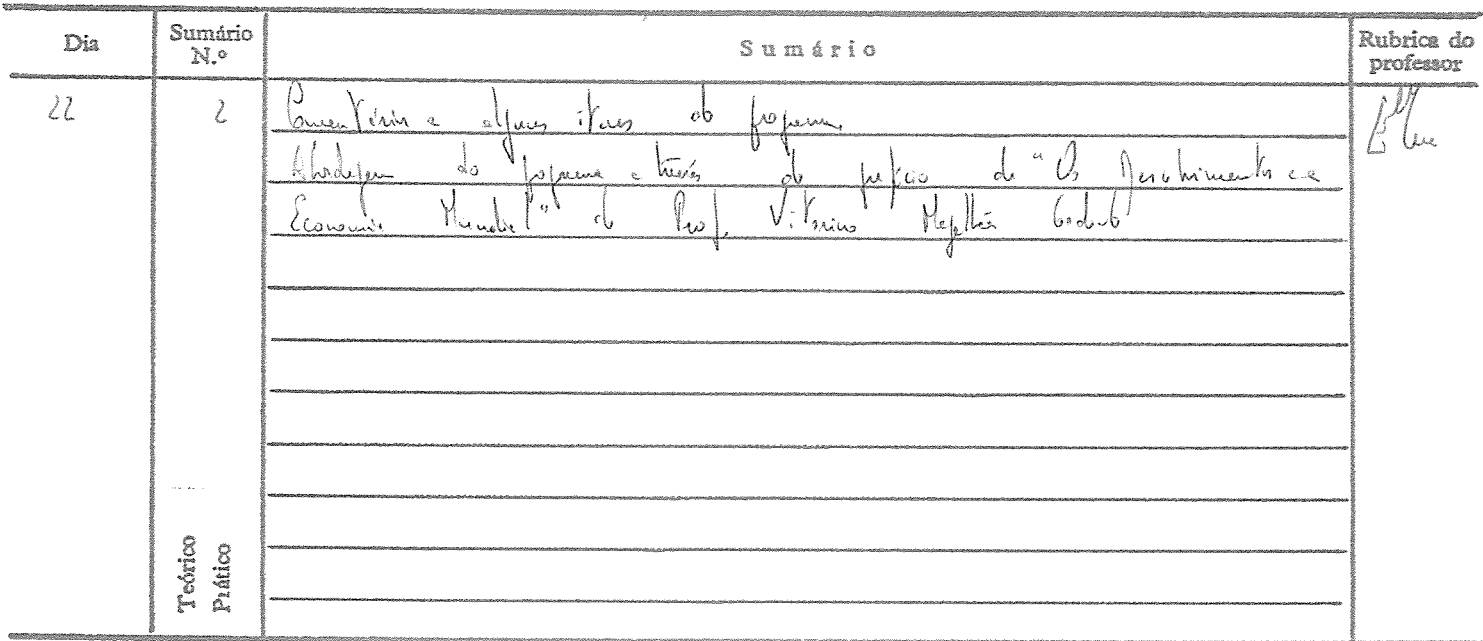 Dia Sumário N.º Sumário Rubrica do professor
22 2 Comentários a alguns itens do programa.
Abordagem do programa através do prefácio de "Os Descobrimentos e a
Economia Mundial" do Prof. Vitorino Magalhães Godinho
Teórico
Prático